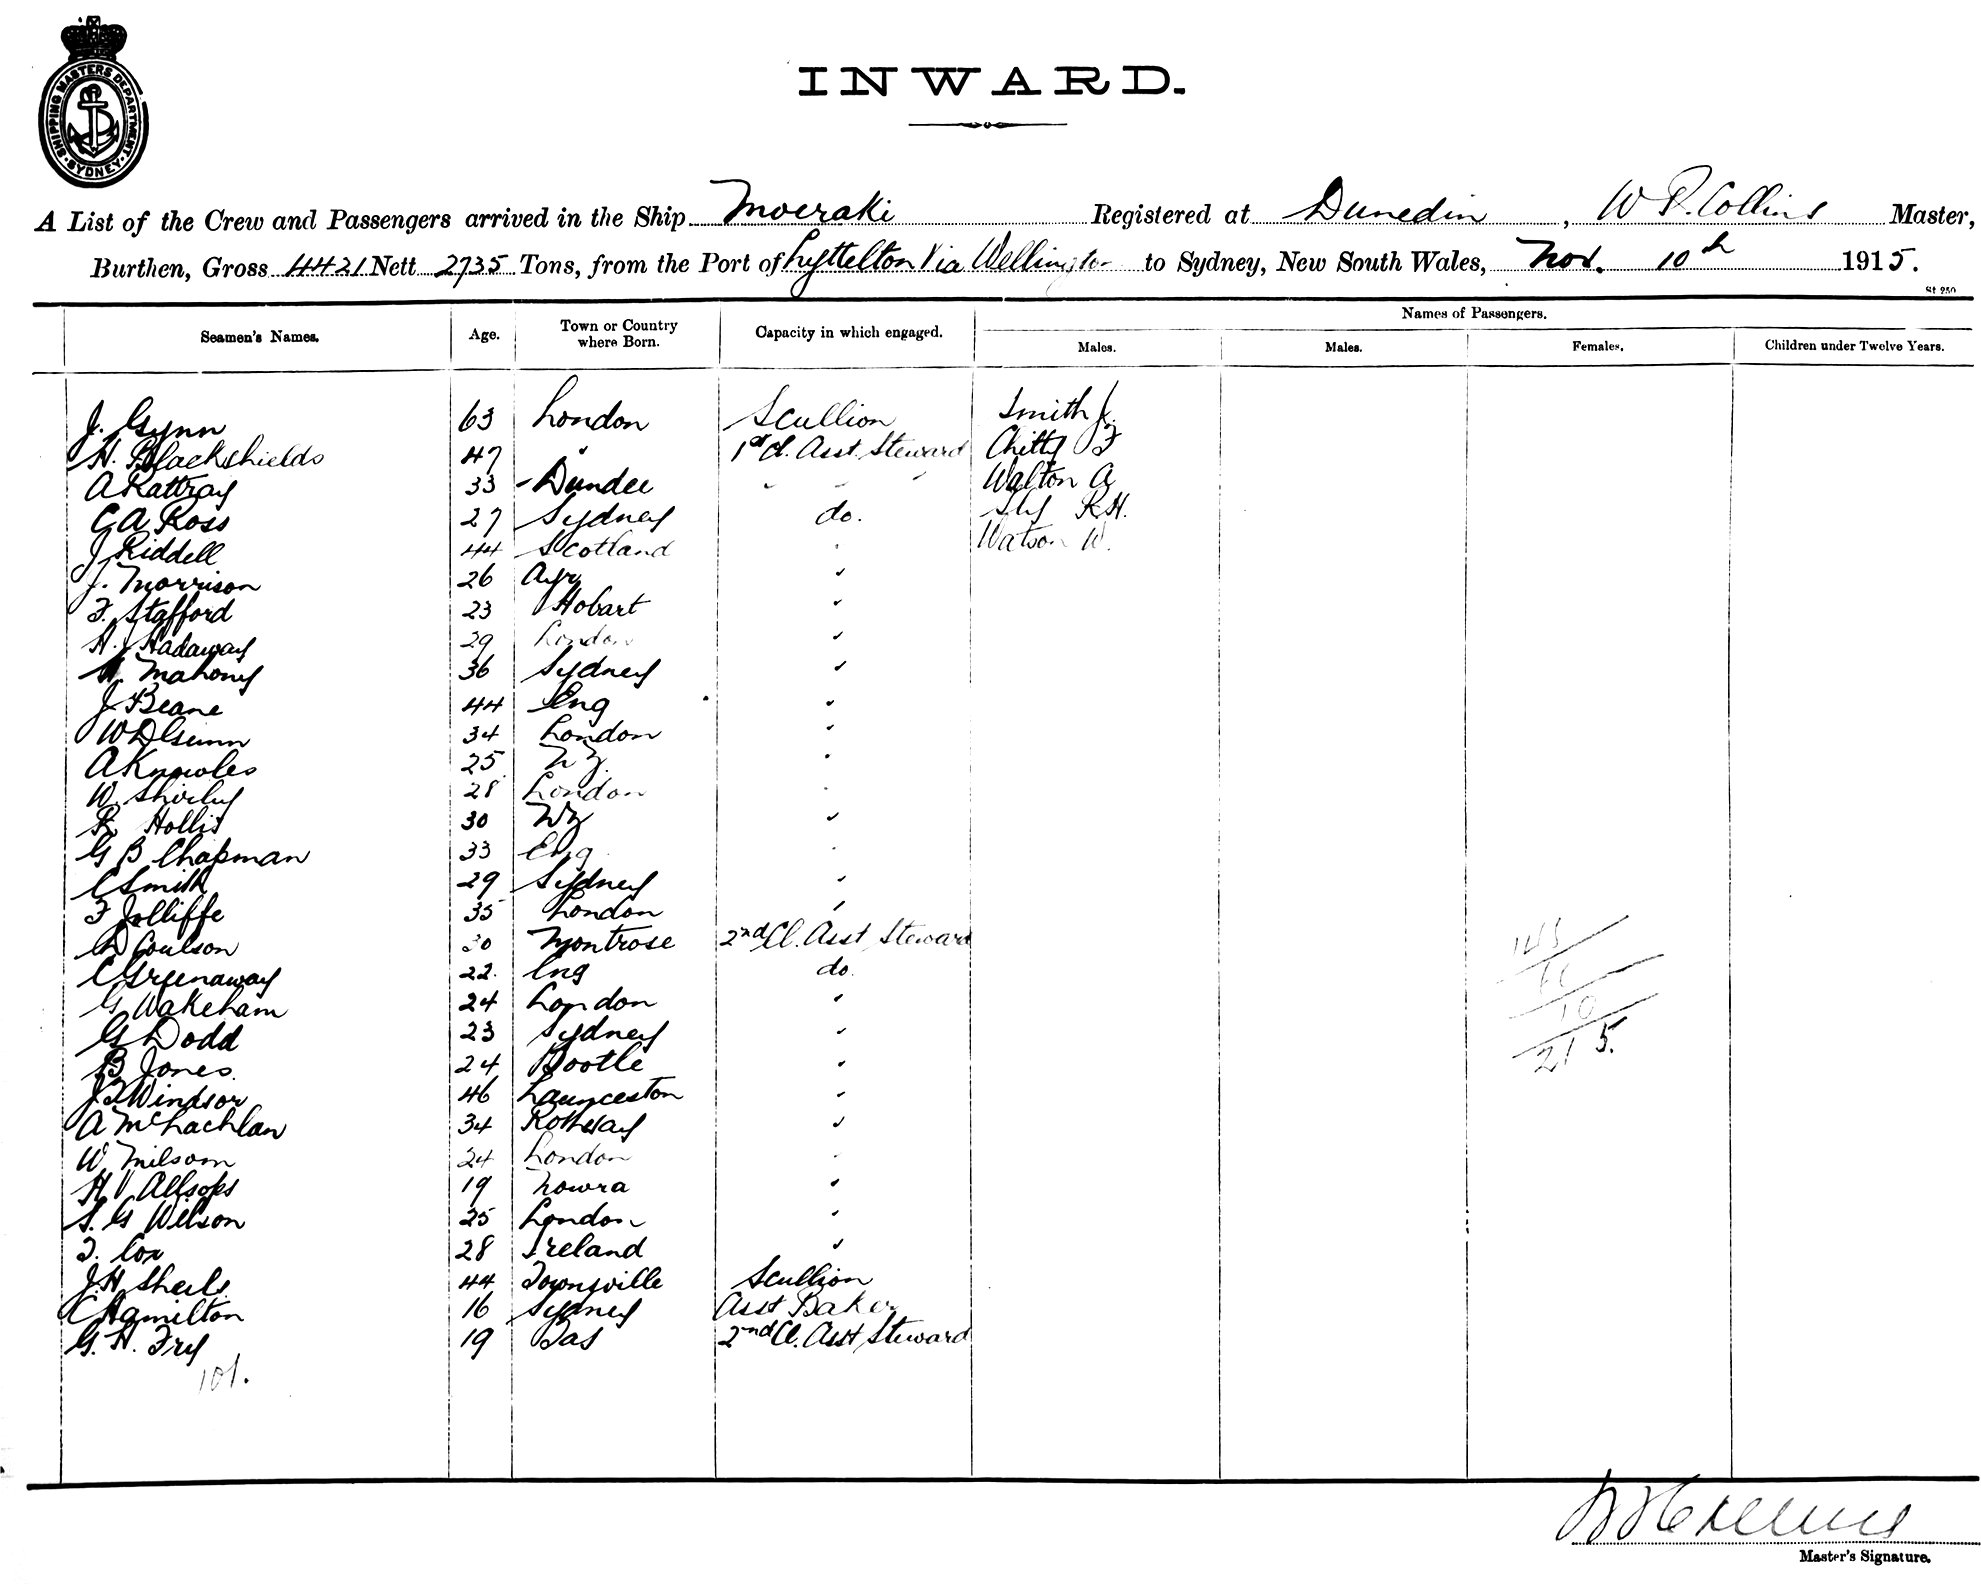 SHIPPING MASTERS DEPARTMENT. SYDNEY.
INWARD.
A List of the Crew and Passengers arrived in the Ship Moeraki Registered at Dunedin, W P. Collins Master,
Burthen, Gross 4421 Nett 2735 Tons, from the Port of Lyttelton Via Wellington to Sydney, New South Wales, Nov. 10th 1915.
St 250
Names of Passengers.
Seamen's Names. Age. Town or Country where Born. Capacity in which engaged. Males. Males. Females. Children under Twelve Years.
J. Gynn 63 London Scullion Smith J.
H. Blackshields 47 " 1st Cl. Asst. Steward Chitty F
A Rattray 33 Dundee " " " Walton A
G A Ross 27 Sydney do. Sly R H.
J Riddell 44 Scotland " Watson W.
J. Morrison 26 Ayr "
F. Stafford 23 Hobart "
H. Hadaway 29 London "
H. Mahony 36 Sydney "
J Beane 44 Eng "
W D Gunn 34 London "
A Knowles 25 NZ. "
W. Shirley 28 London "
R Hollis 30 NZ "
G B Chapman 33 Eng "
C Smith 29 Sydney "
F Jolliffe 35 London "
D Coulson 30 Montrose 2nd Cl. Asst Steward
C Greenaway 22 Eng do.
G Wakeham 24 London "
G Dodd 23 Sydney "
B Jones. 24 Bootle "
J F Windsor 46 Launceston "
A McLachlan 34 Rothesay "
W Milsom 24 London "
H V Allsops 19 Nowra "
S. G Wilson 25 London "
T. Cox 28 Ireland "
J. H Sheils. 44 Townsville Scullion
C Hamilton 16 Sydney Asst Baker
G. H. Fry 19 Tas 2nd Cl. Asst Steward
101.
10
215.
Master's Signature.